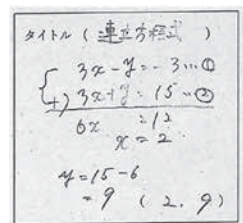 タイトル ( 連立方程式 )
3x-y=-3…①
+) 3x+y=15…②
6x =12
x=2
y=15-6
=9 (2, 9)